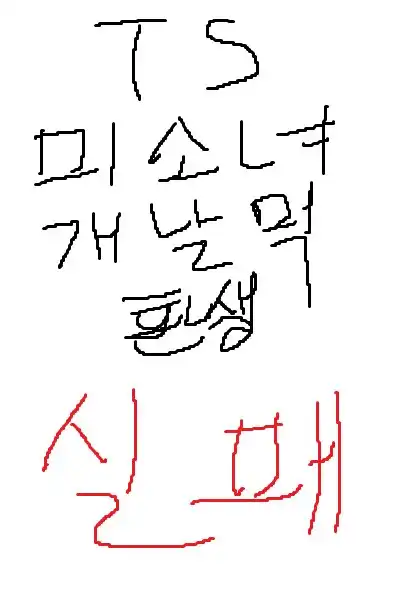 TS
미소녀
개날먹
환생
실패